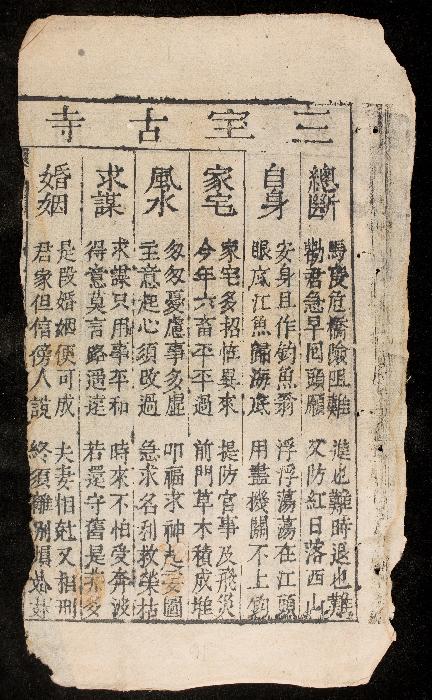 三宝古寺
總斷
馬度危橋險阻難 進也難時退也難
勸君急早回頭願 又防紅日落西山
自身
安身且作釣魚翁 浮浮蕩蕩在江頭
眼底江魚歸海底 用盡機關不上鈎
家宅
家宅多招怪異來 提防官事及飛災
今年六畜平平過 前門草木積成堆
風水
匆匆憂慮事多虛 叩福求神也妄圖
主意起心須改過 急求名利救榮枯
求謀
求謀只用事平和 時來不怕受奔波
得意莫言路遥遠 若還守舊是未多
婚姻
是段婚姻便可成 夫妻相尅又相刑
君家但信傍人説 終須離別損